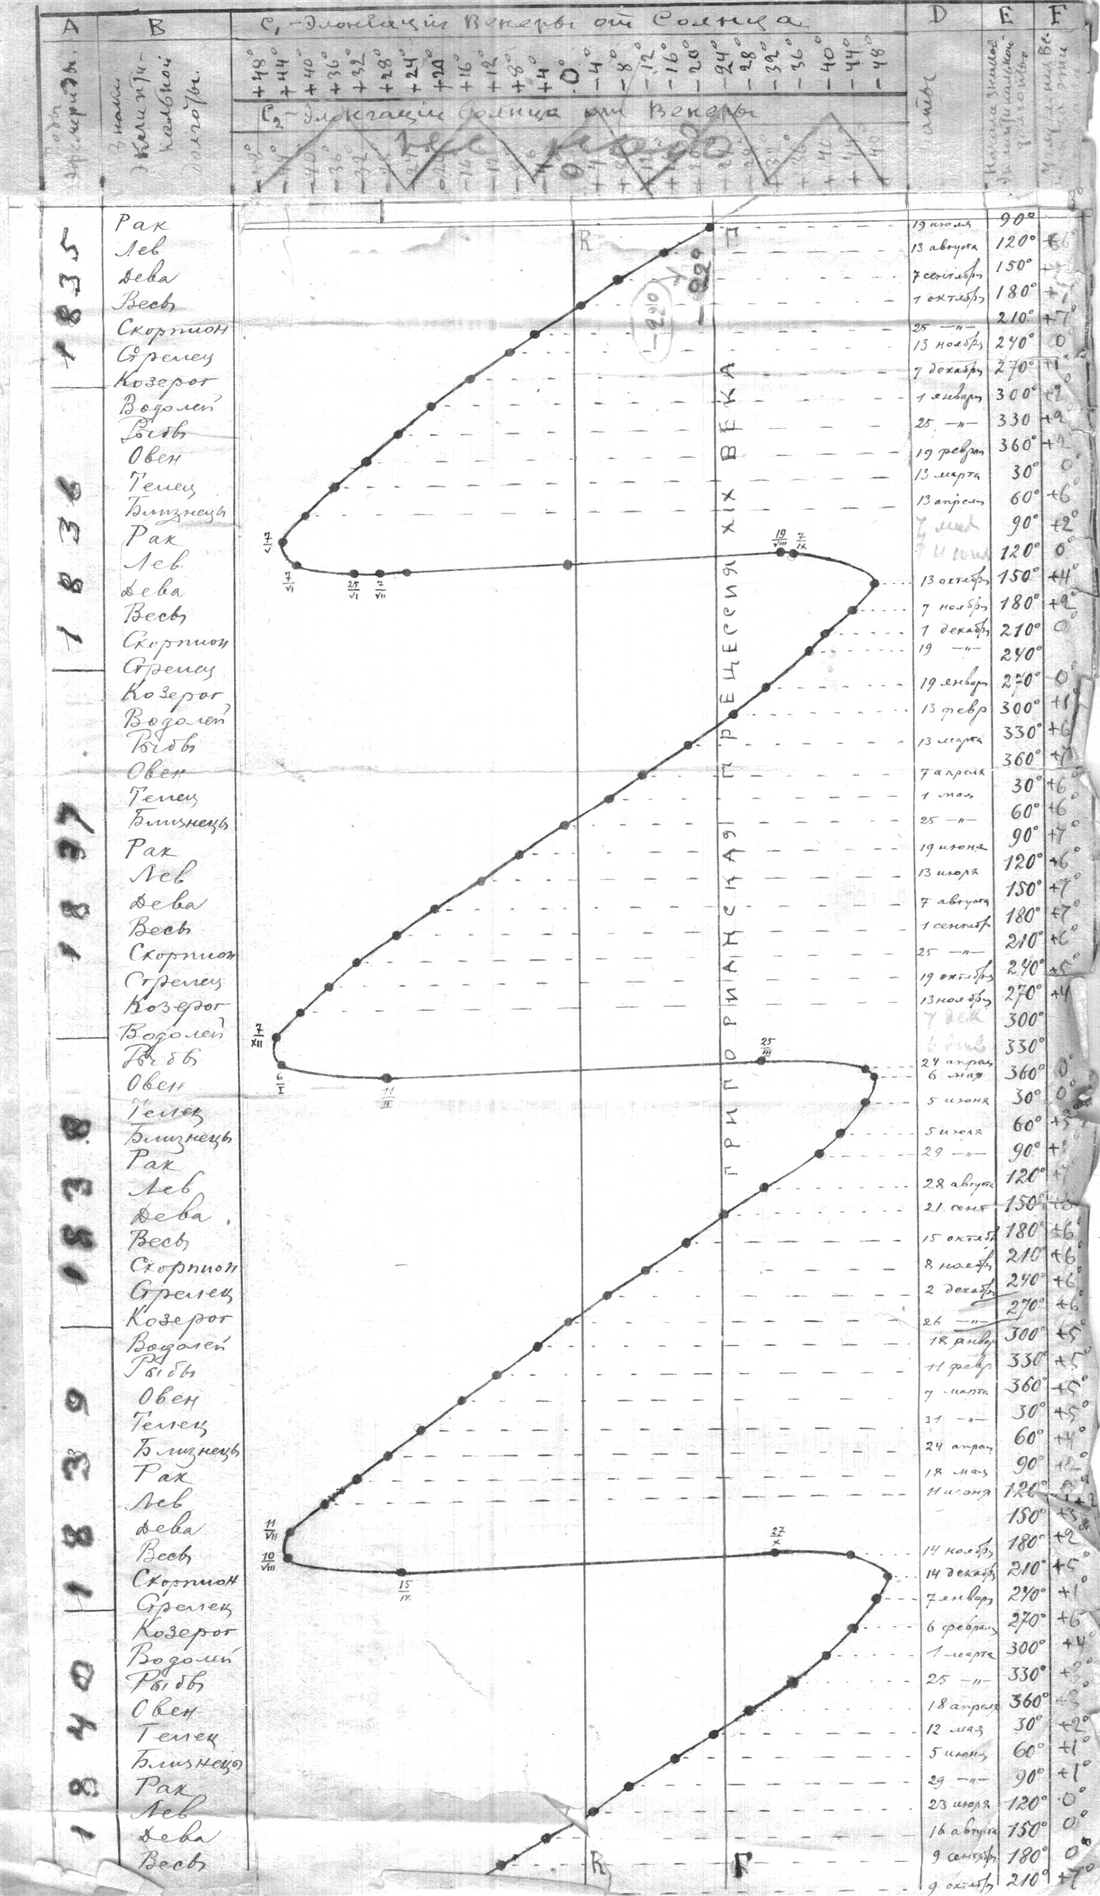 A B C₁ - Элонгации Венеры от Солнца D E F
Годы эфемерид. Знаки Эклиптикальной долготы. +48° +44° +40° +36° +32° +28° +24° +20° +16° +12° +8° +4° 0° -4° -8° -12° -16° -20° -24° -28° -32° -36° -40° -44° -48° Даты
C₂ - Элонгации Солнца от Венеры
не надо
R Г
-22°
ГРИГОРИАНСКАЯ ПРЕЦЕССИЯ XIX ВЕКА
1835
Рак 19 июля 90°
Лев 13 августа 120°
Дева 7 сентябр 150°
Весы 1 октябр 180°
Скорпион 25 -"- 210° +7°
Стрелец 13 ноябр 240° 0
Козерог 7 декабр 270° +1°
Водолей 1 январ 300° +2
Рыбы 25 -"- 330 +2
Овен 19 феврал 360° +2
1836
Телец 13 марта 30° 0°
Близнецы 13 апрель 60° +6°
Рак 7/V 7 мая 90° +2°
Лев 7/VI 25/VI 7/VII 19/VIII 7/IX 120° 0°
Дева 13 октябр 150° +4°
Весы 7 ноябр 180° +2°
Скорпион 1 декабр 210° 0°
Стрелец 19 -"- 240°
Козерог 19 январ 270° 0°
Водолей 13 февр 300° +1°
1837
Рыбы 13 марта 330° +6
Овен 7 апреля 360° +7
Телец 1 мая 30° +6°
Близнецы 25 -"- 60° +6°
Рак 19 июня 90° +7°
Лев 13 июля 120° +6°
Дева 7 августа 150° +7°
Весы 1 сентябр 180° +7°
Скорпион 25 -"- 210° +6°
Стрелец 19 октябр 240° +5°
Козерог 13 ноябр 270° +4
Водолей 7/XII 7 дек 300°
Рыбы 6/I 25/III 330°
Овен 11/II 24 апрел 6 мая 360° 0°
1838
Телец 5 июня 30° 0°
Близнецы 5 июля 60°
Рак 29 -"- 90°
Лев 28 августа 120°
Дева 21 сент 150°
Весы 15 октябр 180° +6°
Скорпион 8 ноябр 210° +6°
Стрелец 2 декабр 240° +6°
Козерог 26 -"- 270° +6°
Водолей 18 январ 300° +5°
1839
Рыбы 11 февр 330° +5°
Овен 7 марта 360° +5°
Телец 31 -"- 30° +5°
Близнецы 24 апрел 60° +4°
Рак 18 мая 90°
Лев 11 июня 120°
Дева 11/VII 150°
Весы 10/VIII 27/X 14 ноябр 180° +2
Скорпион 15/IX 14 декабр 210° +5°
Стрелец 7 январ 240° +1°
1840
Козерог 6 феврал 270° +6°
Водолей 1 марта 300° +4°
Рыбы 25 -"- 330°
Овен 18 апреля 360°
Телец 12 мая 30° +2°
Близнецы 5 июня 60° +1°
Рак 29 -"- 90° +1°
Лев 23 июля 120° 0°
Дева 16 августа 150° 0°
Весы R Г 9 сентябр 180° 0°
9 октябр 210° +7°